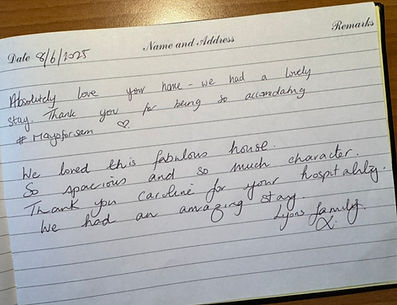 Date 8/6/2025 Name and Address Remarks
Absolutely love your home - we had a lovely
stay. Thank you for being so accomdating
# Mayoforsam ♡
We loved this fabulous house.
So spacious and so much character.
Thank you Caroline for your hospitality.
We had an amazing stay.
Lyons family.
X.